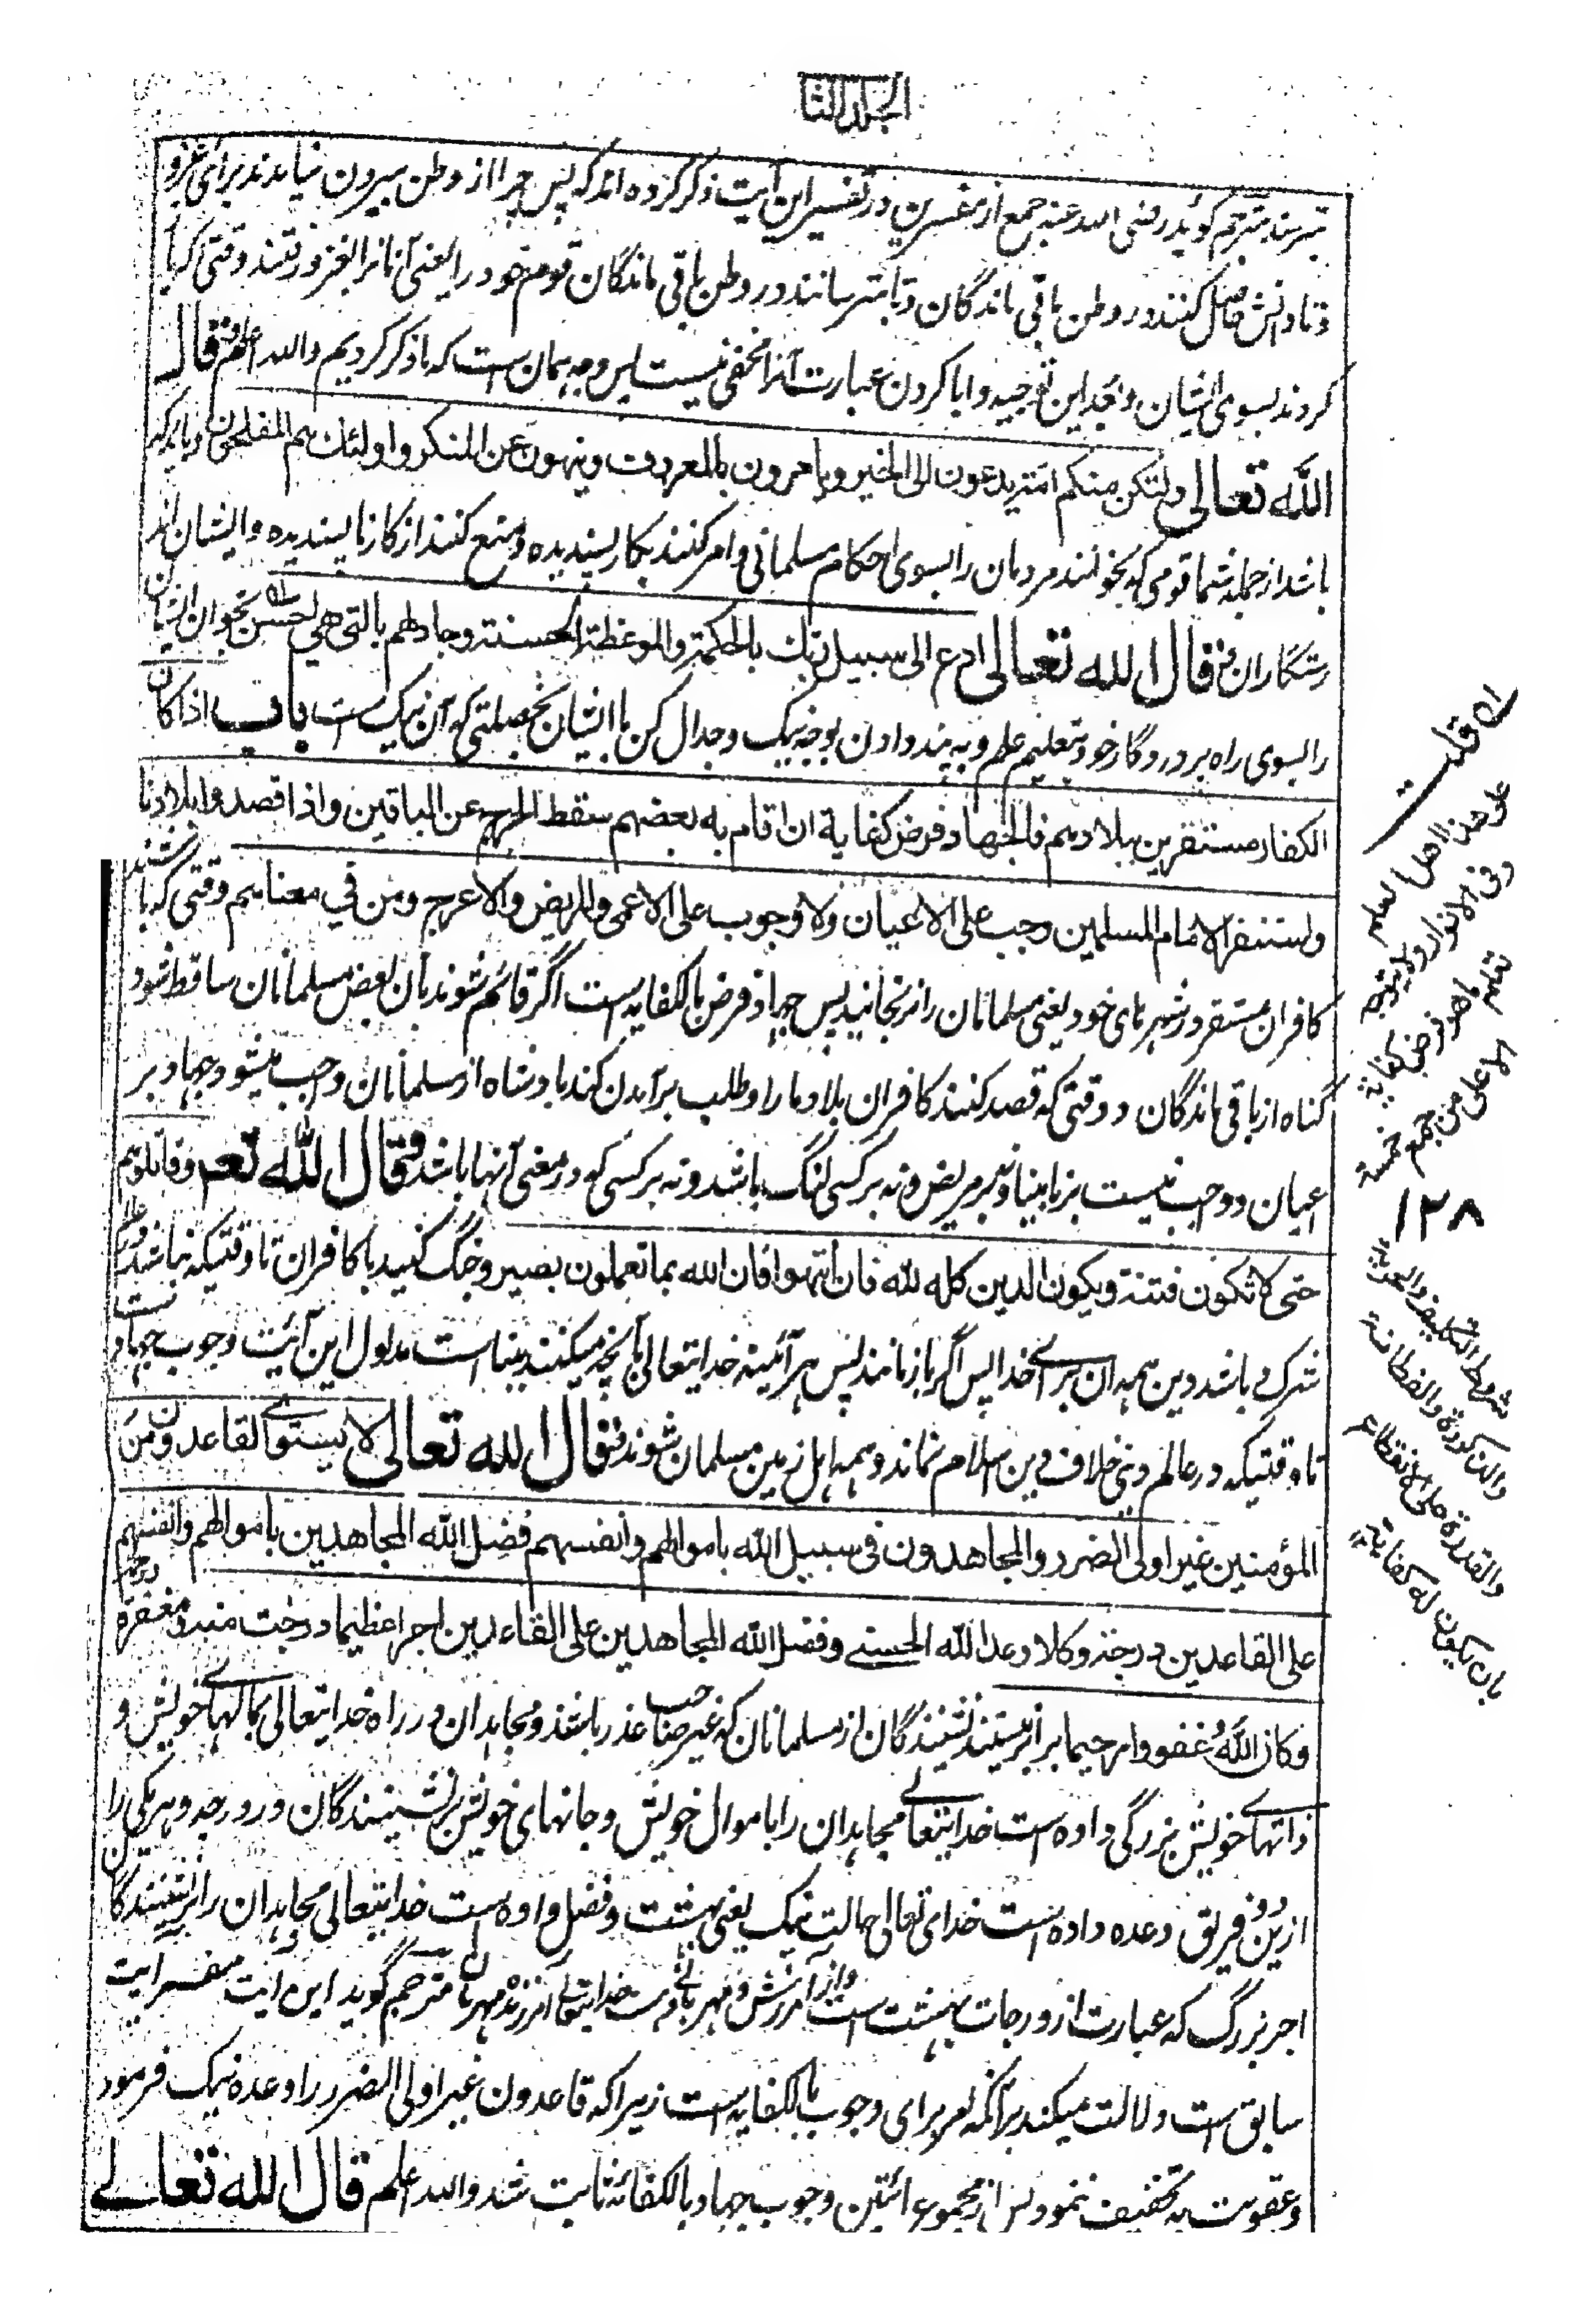 الجلد الثا
بترسند مترجم گوید رضی الله عنه جمع از مفسرین در تفسیر این آیت ذکر کرده اند که پس چرا از وطن بیرون نیایدند برای غزو
و تا دانش حاصل کنند در وطن باقی ماندگان و تا بترسانند در وطن باقی ماندگان قوم خود را یعنی آنانرا که بغزو رفتند وقتی که باز
گردند بسوی ایشان و بعد این توجیه و ابا کردن عبارت آنرا مخفی نیست پس وجه همان ست که ما ذکر کردیم والله اعلم قال
الله تعالی ولتكن منكم امة يدعون الى الخير ويامرون بالمعروف وينهون عن المنكر واولئك هم المفلحون و باید که
باشد از جمله شما قومی که بخوانند مردمان را بسوی احکام مسلمانی و امر کنند بکار پسندیده و منع کنند از کار ناپسندیده و ایشان اند
رستگاران قال الله تعالى ادع الى سبيل ربك بالحكمة والموعظة الحسنة وجادلهم بالتي هي احسن بخوان ایشان
را بسوی راه پروردگار خود بتعلیم علم و به پند دادن بوجه نیک و جدال کن با ایشان بخصلتی که آن نیک ست باب اذا كان
الكفار مستقرين ببلادهم فالجهاد فرض كفاية ان اقام به بعضهم سقط الحرج عن الباقين واذا قصدوا بلادنا
واستنفر الامام المسلمين وجب على الاعيان ولا وجوب على الاعمى والمريض والاعرج ومن في معناهم وقتی که باشند
کافران مستقر در شهرهای خود یعنی مسلمانان را نرنجانند پس جهاد فرض بالکفایه ست اگر قائم شوند بآن بعض مسلمانان ساقط شود
گناه از باقی ماندگان و وقتی که قصد کنند کافران بلاد ما را و طلب برآمدن کند بادشاه از مسلمانان واجب میشود جهاد بر
اعیان و واجب نیست بر نابینا و نه بر مریض و نه بر کسی لنگ باشد و نه بر کسی که در معنی آنها باشد قال الله تعـ وقاتلوهم
حتى لا تكون فتنة ويكون الدين كله لله فان انتهوا فان الله بما تعملون بصير و جنگ کنید با کافران تا وقتیکه نباشد
شرک و باشد دین همه آن برای خدا پس اگر باز مانند پس هر آئینه خدایتعالی بآنچه میکنند بینا است مدلول این آئیت وجوب جهاد
تا وقتیکه در عالم دینی خلاف دین اسلام نماند و همه اهل زمین مسلمان شوند قال الله تعالى لا يستوي القاعدون من
المؤمنين غير اولى الضرر والمجاهدون فى سبيل الله باموالهم وانفسهم فضل الله المجاهدين باموالهم وانفسهم
على القاعدين درجة وكلا وعد الله الحسنى وفضل الله المجاهدين على القاعدين اجرا عظيما درجت منه ومغفرة ورحمة
وكان الله غفورا رحيما برابر نیستند نشینندگان از مسلمانان که غیر صاحب عذر باشند و مجاهدان در راه خدایتعالی بمالهای خویش و
ذاتهای خویش بزرگی داده ست خدایتعالی مجاهدان را باموال خویش و جانهای خویش بر نشینندگان در درجه و هر یکی را
ازین دو فریق وعده داده ست خدای تعالی حالت نیک یعنی بهشت و فضل داده ست خدایتعالی مجاهدان را بر نشینندگان
اجر بزرگ که عبارت از درجات بهشت ست و از آمرزش و مهربانی و هست خدایتعالی آمرزنده مهربان مترجم گوید این آیت مفسر آیت
سابق ست دلالت میکند بر آنکه امر برای وجوب بالکفایه ست زیرا که قاعدون غیر اولی الضرر را وعده نیک فرمود
و عقوبت به تخفیف نمود پس از مجموع آئتین وجوب جهاد بالکفائه ثابت شد والله اعلم قال الله تعالے
له قلت
على هذا اهل العلم
وفى الانوار ولا يتوجه
الا على من جمع خمسة
۱۲۸
شروط التكليف والحرية
والذكورة والفطانة
بان يكون له كفاية